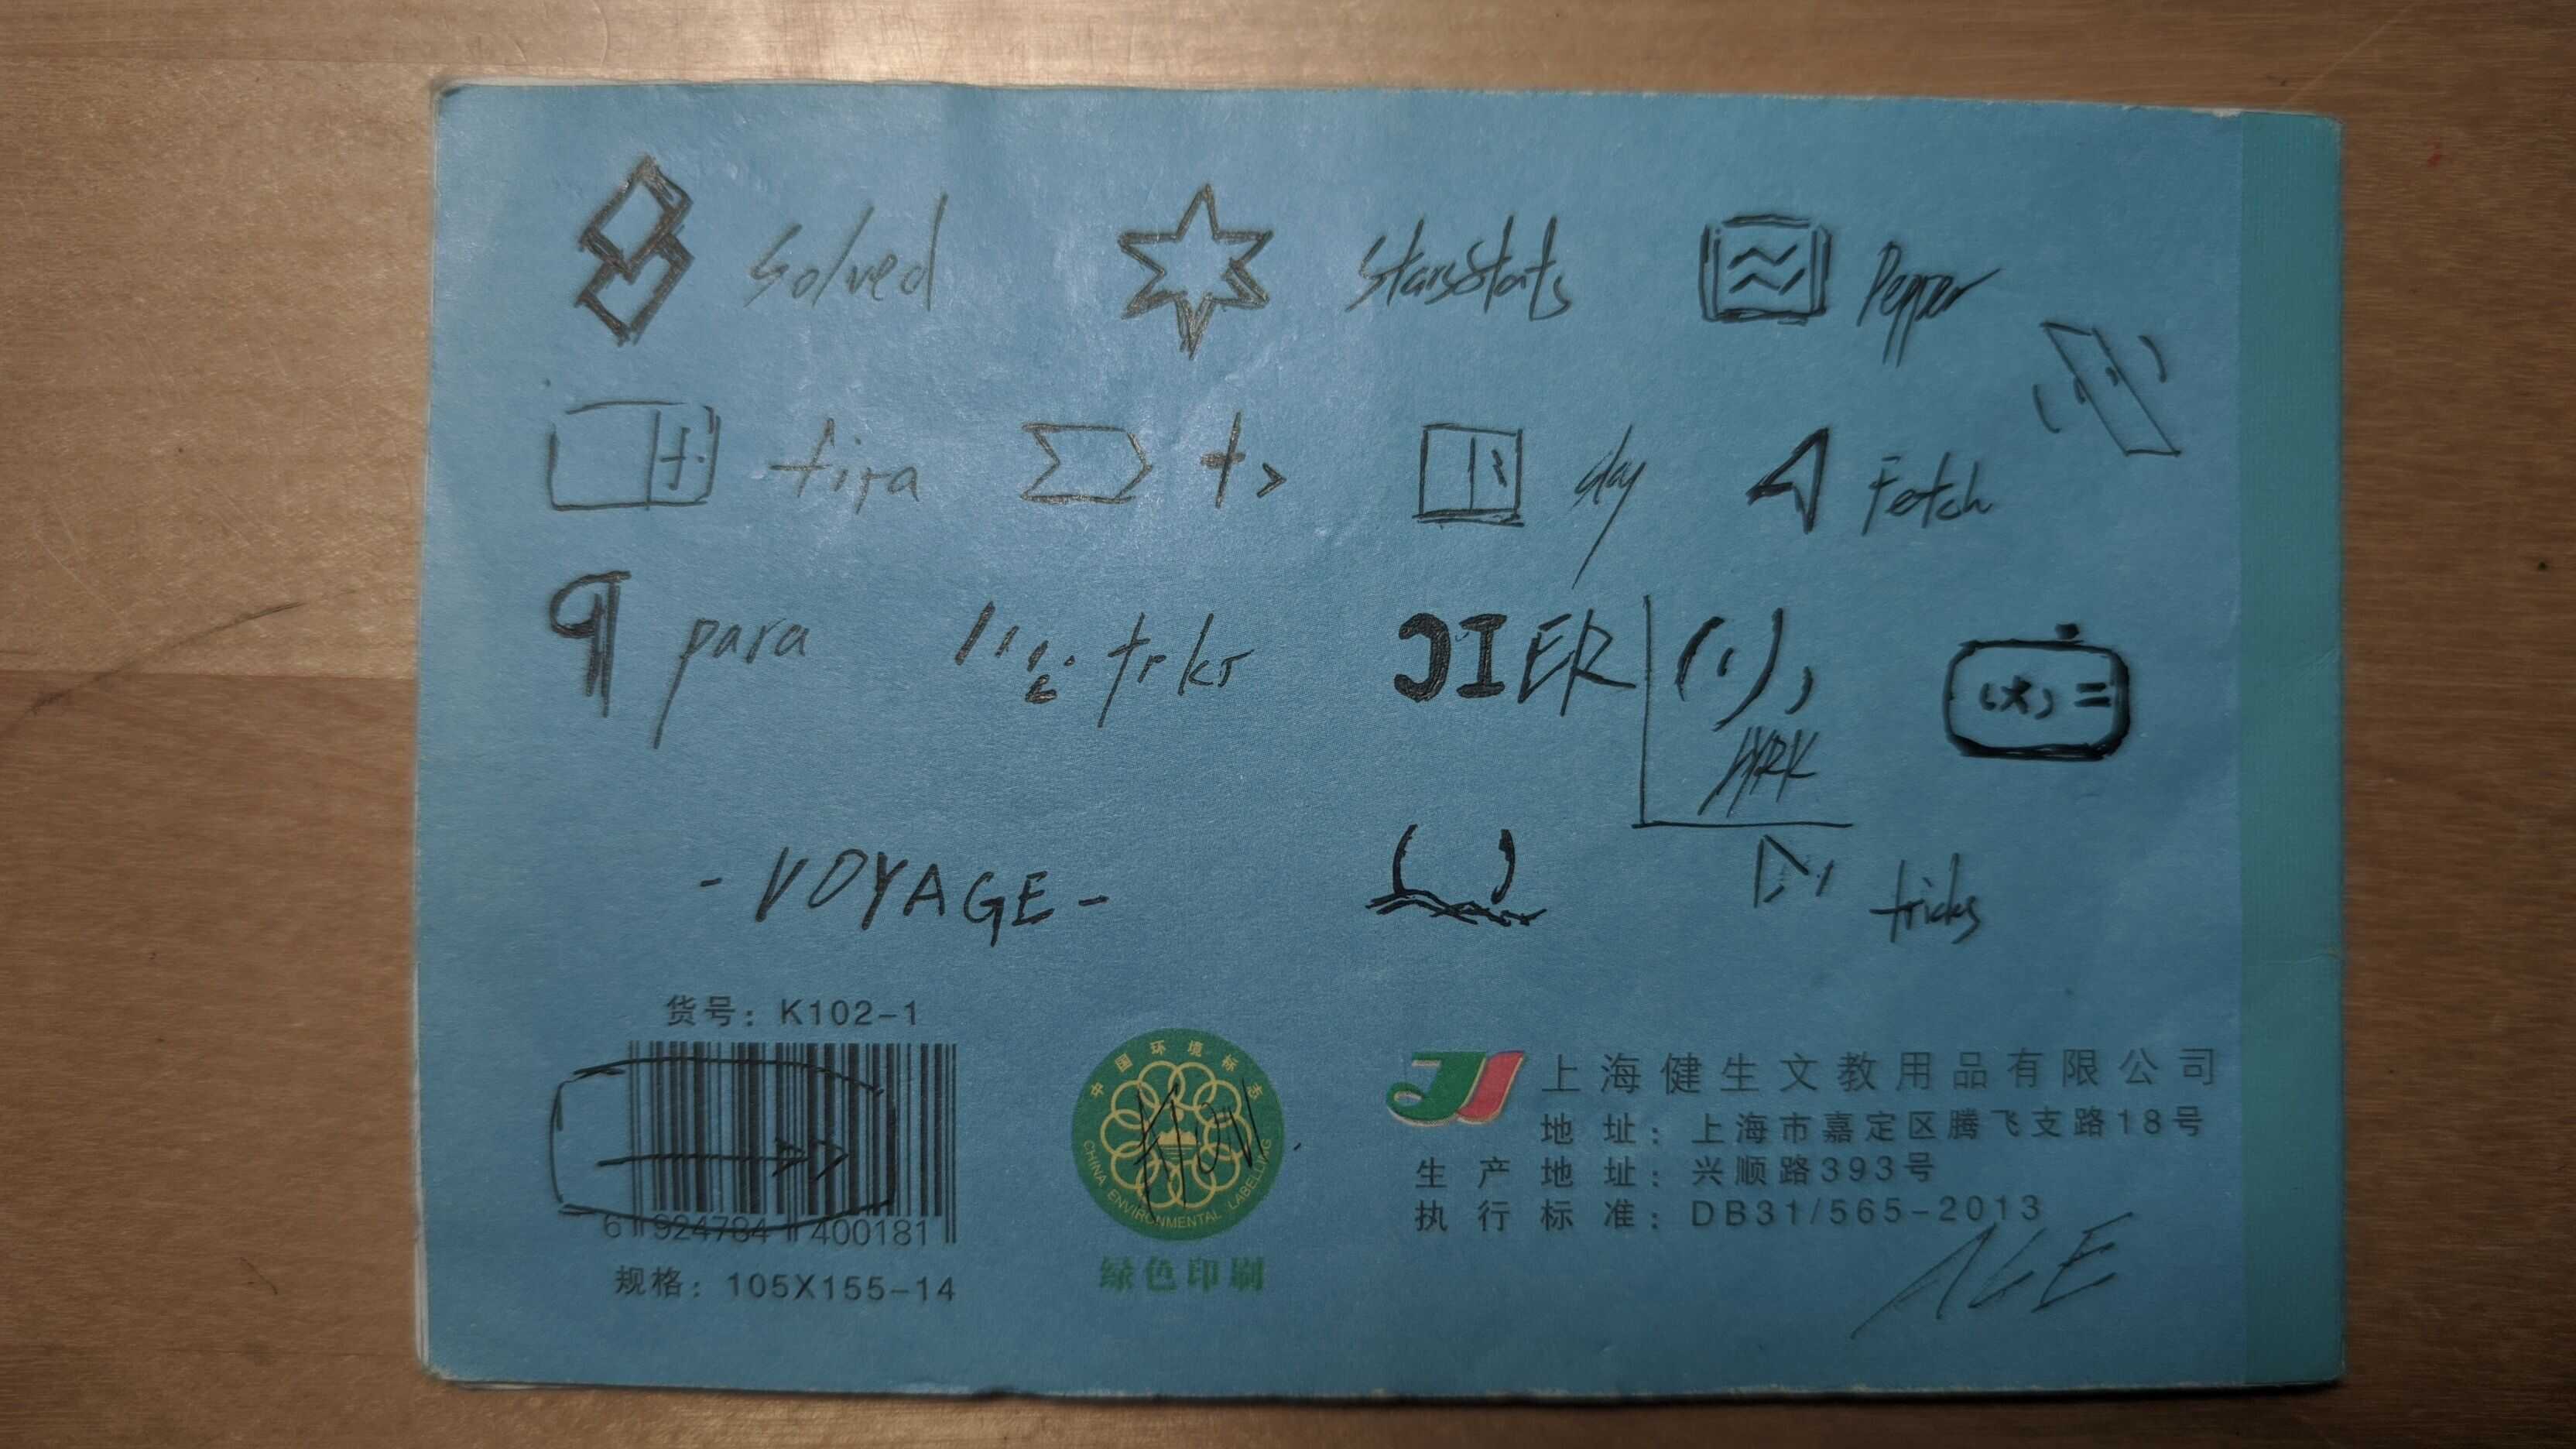 solved StarsStats Pepper
tira t> day Fetch
¶ para trkr JIER (·),
HRK
(x)=
- VOYAGE -
tricks
货号：K102-1
6 924784 400181
规格：105X155-14
中国环境标志
CHINA ENVIRONMENTAL LABELLING
绿色印刷
上海健生文教用品有限公司
地址：上海市嘉定区腾飞支路18号
生产地址：兴顺路393号
执行标准：DB31/565-2013